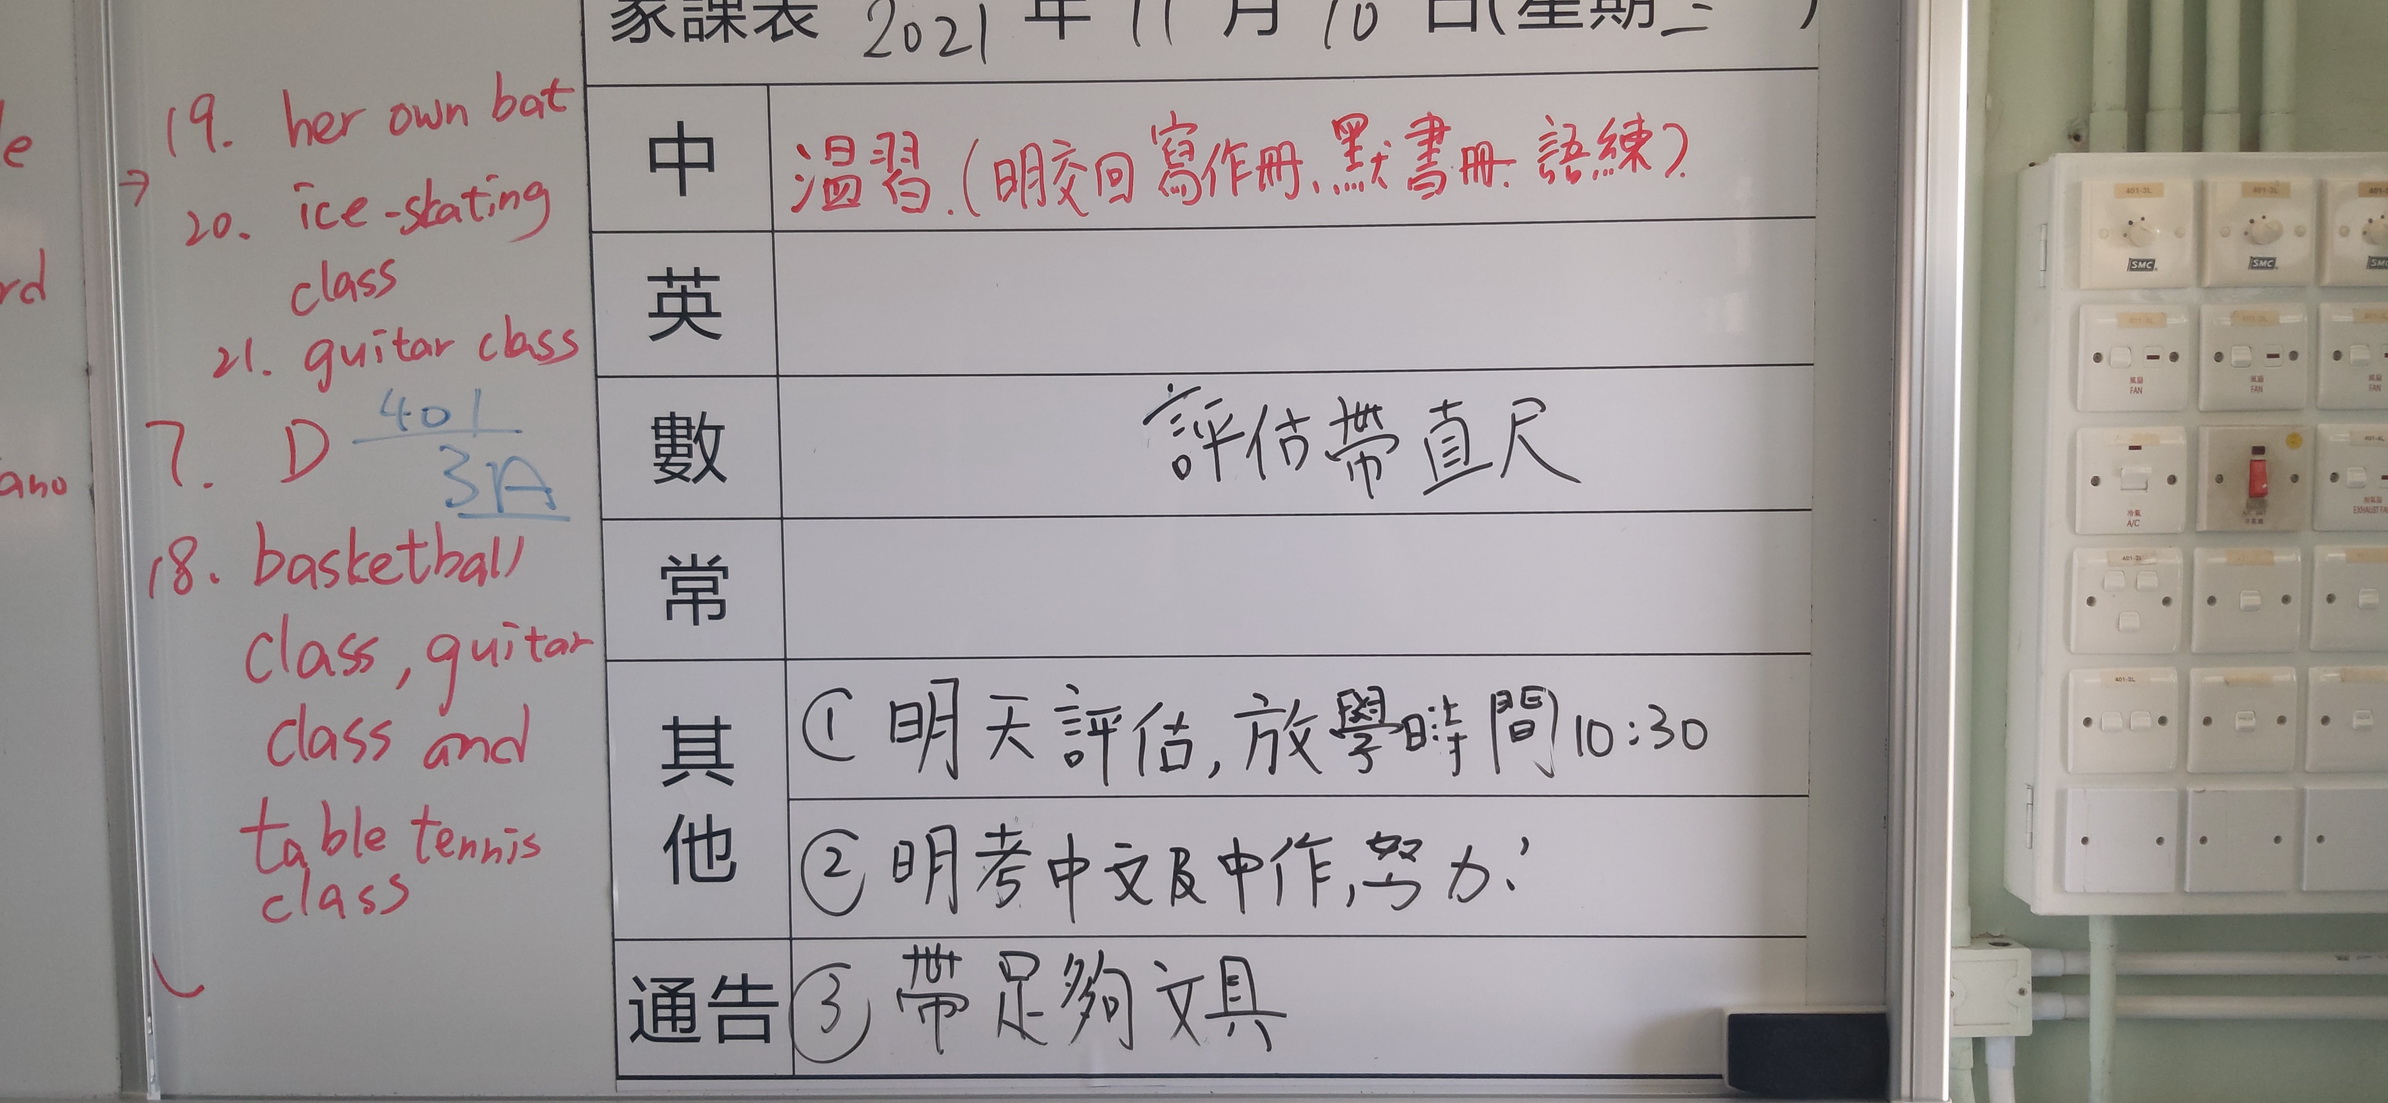 le
rd
ano
19. her own bat
→ 20. ice-skating
class
21. guitar class
7. D 401
3A
18. basketball
class, guitar
class and
table tennis
class
家課表 2021 年 11 月 10 日(星期三 )
中 溫習.(明交回寫作冊、默書冊、語練).
英
數 評估帶直尺
常
其他 ① 明天評估, 放學時間10:30
② 明考中文及中作,努力!
通告 ③ 帶足夠文具
401-3L
SMC
SMC
SMC
風扇
FAN
風扇
FAN
FAN
冷氣
A/C
EXHAUST FAN
401-2L
401-3L